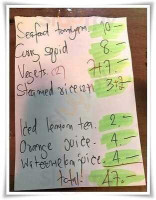 Seafood tomyam 10 -
Curry squid 8 -
Veget. (2) 7+7 -
Steamed rice (2) 3+2
Iced lemon tea. 2 -
Orange Juice. 4 -
Watermelon juice. 4 -
total: 47 -